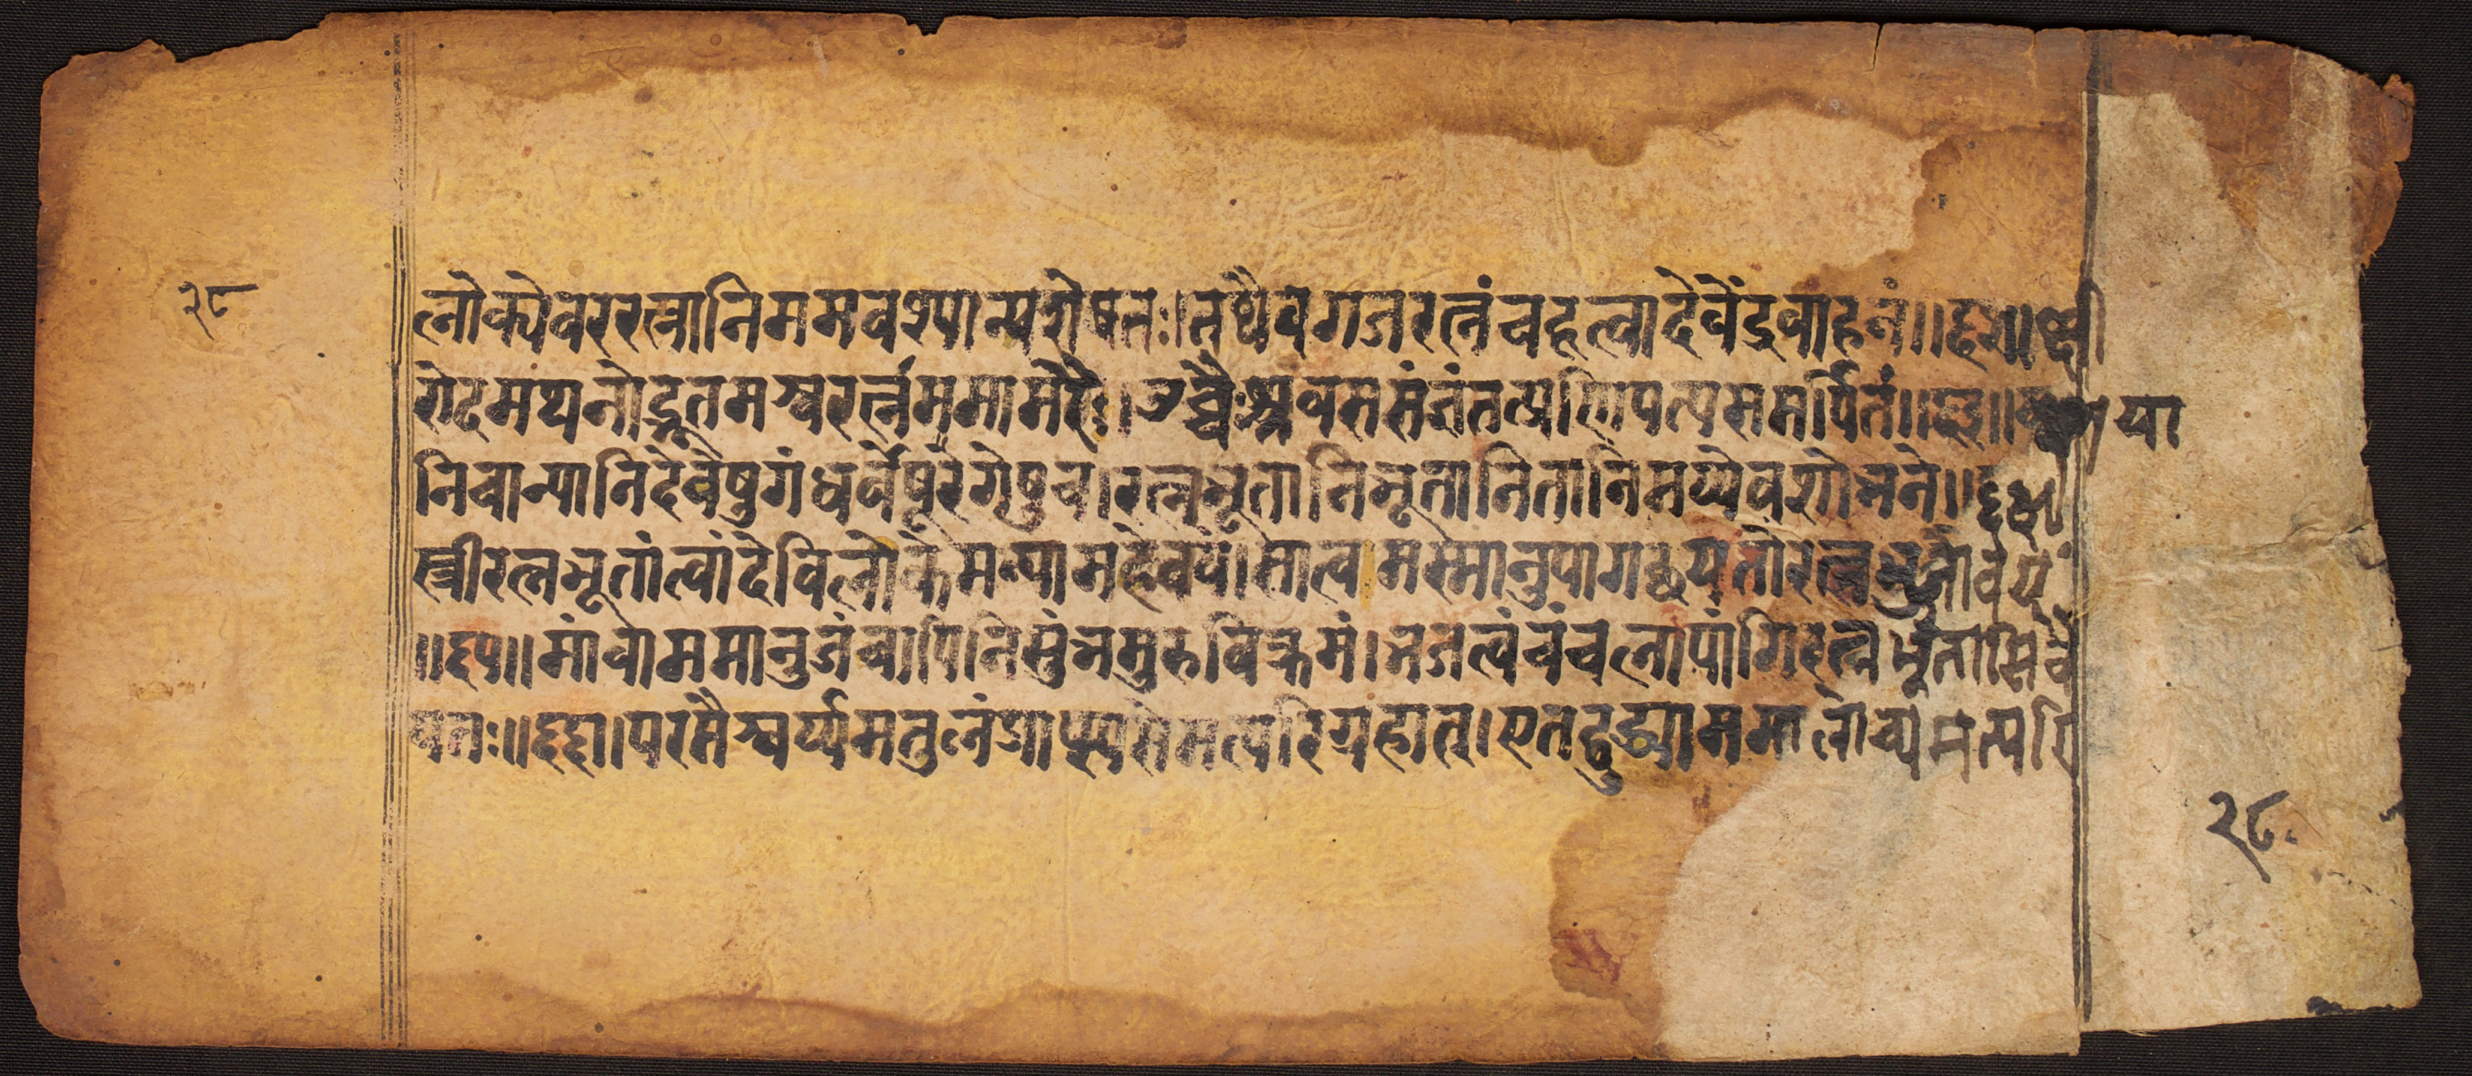 २८
लोक्येवररत्नानिममवश्यान्यशेषतः।तथैवगजरत्नंचहृत्वादेवेंद्रवाहनं॥॥क्षी
रोदमथनोद्भूतमश्वरर्त्नममामरैः।उच्चैःश्रवससंज्ञंतत्प्रणिपत्यसमर्पितं॥॥यानि
निचान्यानिदेवेषुगंधर्वेषूरगेषुच।रत्नभूतानिभूतानितानिमय्येवशोभने॥६४॥
स्त्रीरत्नभूतांत्वांदेविलोकेमन्यामहेवयं।सात्वमस्मानुपागछयतोरत्नभुजोवयं
॥६५॥मांवाममानुजंवापिनिसुंभमुरुविक्रमं।भजत्वंचंचलापांगिरत्नभूतासिवै
यतः॥६६॥परमैश्वर्य्यमतुलंप्राप्स्यसेमत्परिग्रहात्।एतद्बुद्ध्यासमालोच्यमत्परि
२८